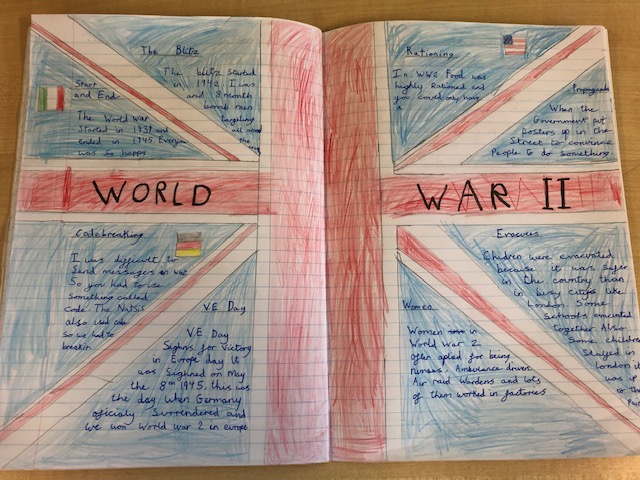 The Blitz
The blitz started
in 1942. I was
and 8 month
bomb
targeting
all
the
Start
and End
The World War
Started in 1939 and
ended in 1945. Everyone
was so happy
Rationing
In WW2 Food was
highly Rationed and
you could only have
a
When the
Government put
posters up in the
Street to convince
People to do something
WORLD WAR II
Codebreaking
I was difficult to
Send messagers in
So you had to use
something called
code. The
also used code
so we had to
V.E. Day
V.E. Day
for Victory
in Europe day. It
was Sighned on May
the 8th 1945. this was
the day when Germany
Surrendered and
We won World war 2 in europe
Evacuees
Children were evacuated
because it was safer
in the country than
in busy citys like
London. Some
Schools evacuated
together. Also
Some children
Stayed in
London it
was up
to the
Women
Women
World War 2
often for being
nurses, Ambulance driver
Air raid wardens and lots
of them worked in factories